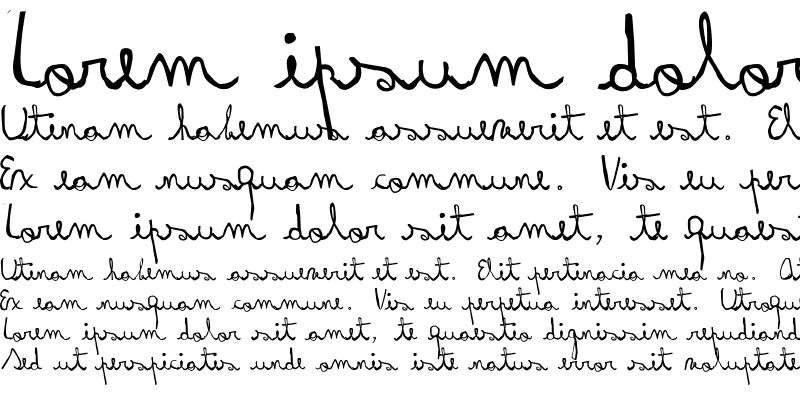 Lorem ipsum dolor
Utinam habemus assueverit et est. El
Ex eam nusquam commune. Vis eu per
Lorem ipsum dolor sit amet, te quaest
Utinam habemus assueverit et est. Elit pertinacia mea no. At
Ex eam nusquam commune. Vis eu perpetua interesset. Utroqu
Lorem ipsum dolor sit amet, te quaestio dignissim repudiand
Sed ut perspiciatis unde omnis iste natus error sit voluptate